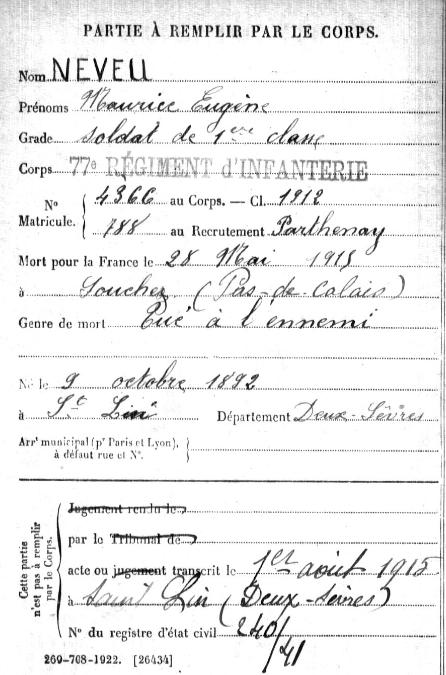 PARTIE À REMPLIR PAR LE CORPS.
Nom NEVEU
Prénoms Maurice Eugène
Grade soldat de 1ère classe
Corps 77e RÉGIMENT d'INFANTERIE
No 4366 au Corps. — Cl. 1912
Matricule. 788 au Recrutement Parthenay
Mort pour la France le 28 Mai 1915
à Souchez (Pas-de-Calais)
Genre de mort Tué à l'ennemi
Né le 9 octobre 1892
à St Lin Département Deux-Sèvres
Arrt municipal (pr Paris et Lyon),
à défaut rue et No.
Cette partie
n'est pas à remplir
par le Corps.
Jugement rendu le
par le Tribunal de
acte ou jugement transcrit le 1er août 1915
à Saint Lin (Deux-Sèvres)
No du registre d'état civil 240/
/41
269-708-1922. [26434]